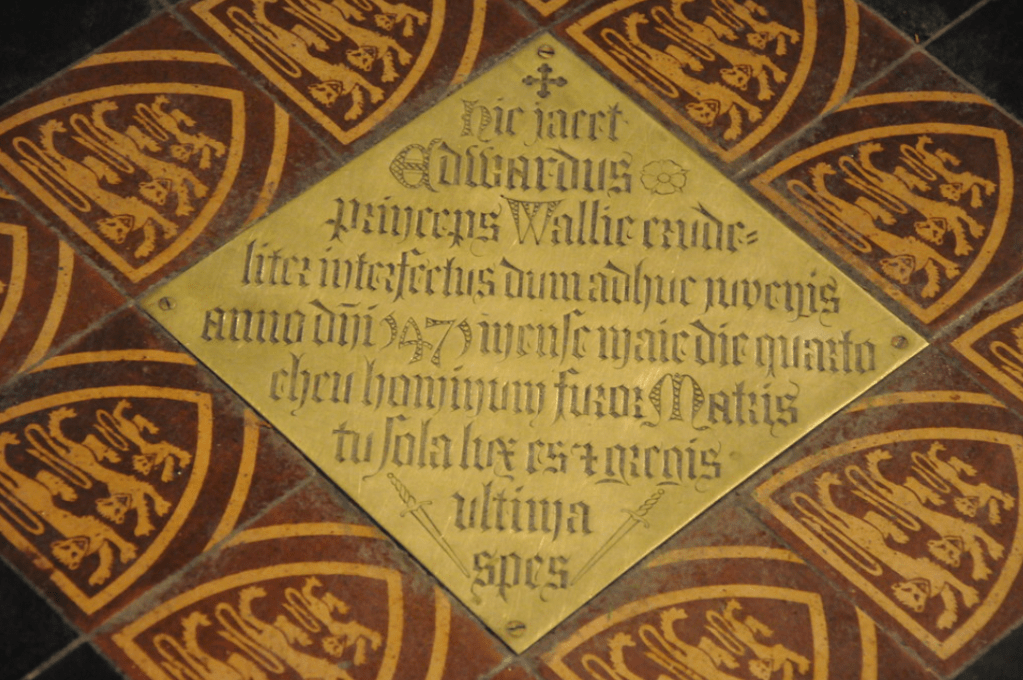 Hic jacet
Edwardus
princeps Wallie crude=
liter interfectus dum adhuc juvenis
anno dñi 1471 mense maie die quarto
eheu hominum furor Matris
tu sola lux es & gregis
ultima
spes